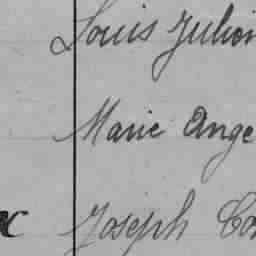 Louis Julien
Marie Ange
Joseph